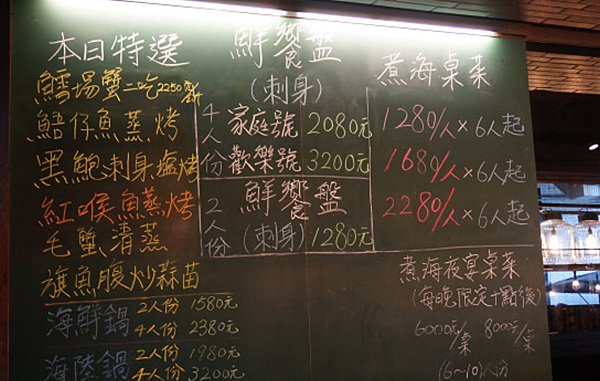 本日特選
鱈場蟹二吃2250
鮥仔魚蒸烤
黑鮑刺身塩烤
紅喉魚蒸烤
毛蟹清蒸
旗魚腹炒蒜苗
海鮮鍋 2人份 1580元
4人份 2380元
海陸鍋 2人份 1980元
4人份 3200元
鮮饗盤
(刺身)
4人份
家庭號 2080元
歡樂號 3200元
2人份
鮮饗盤
(刺身) 1280元
煮海桌菜
1280/人×6人起
1680/人×6人起
2280/人×6人起
煮海夜宴桌菜
(每晚限定十點後)
6000元/桌 8000元/桌
(6~10)人份